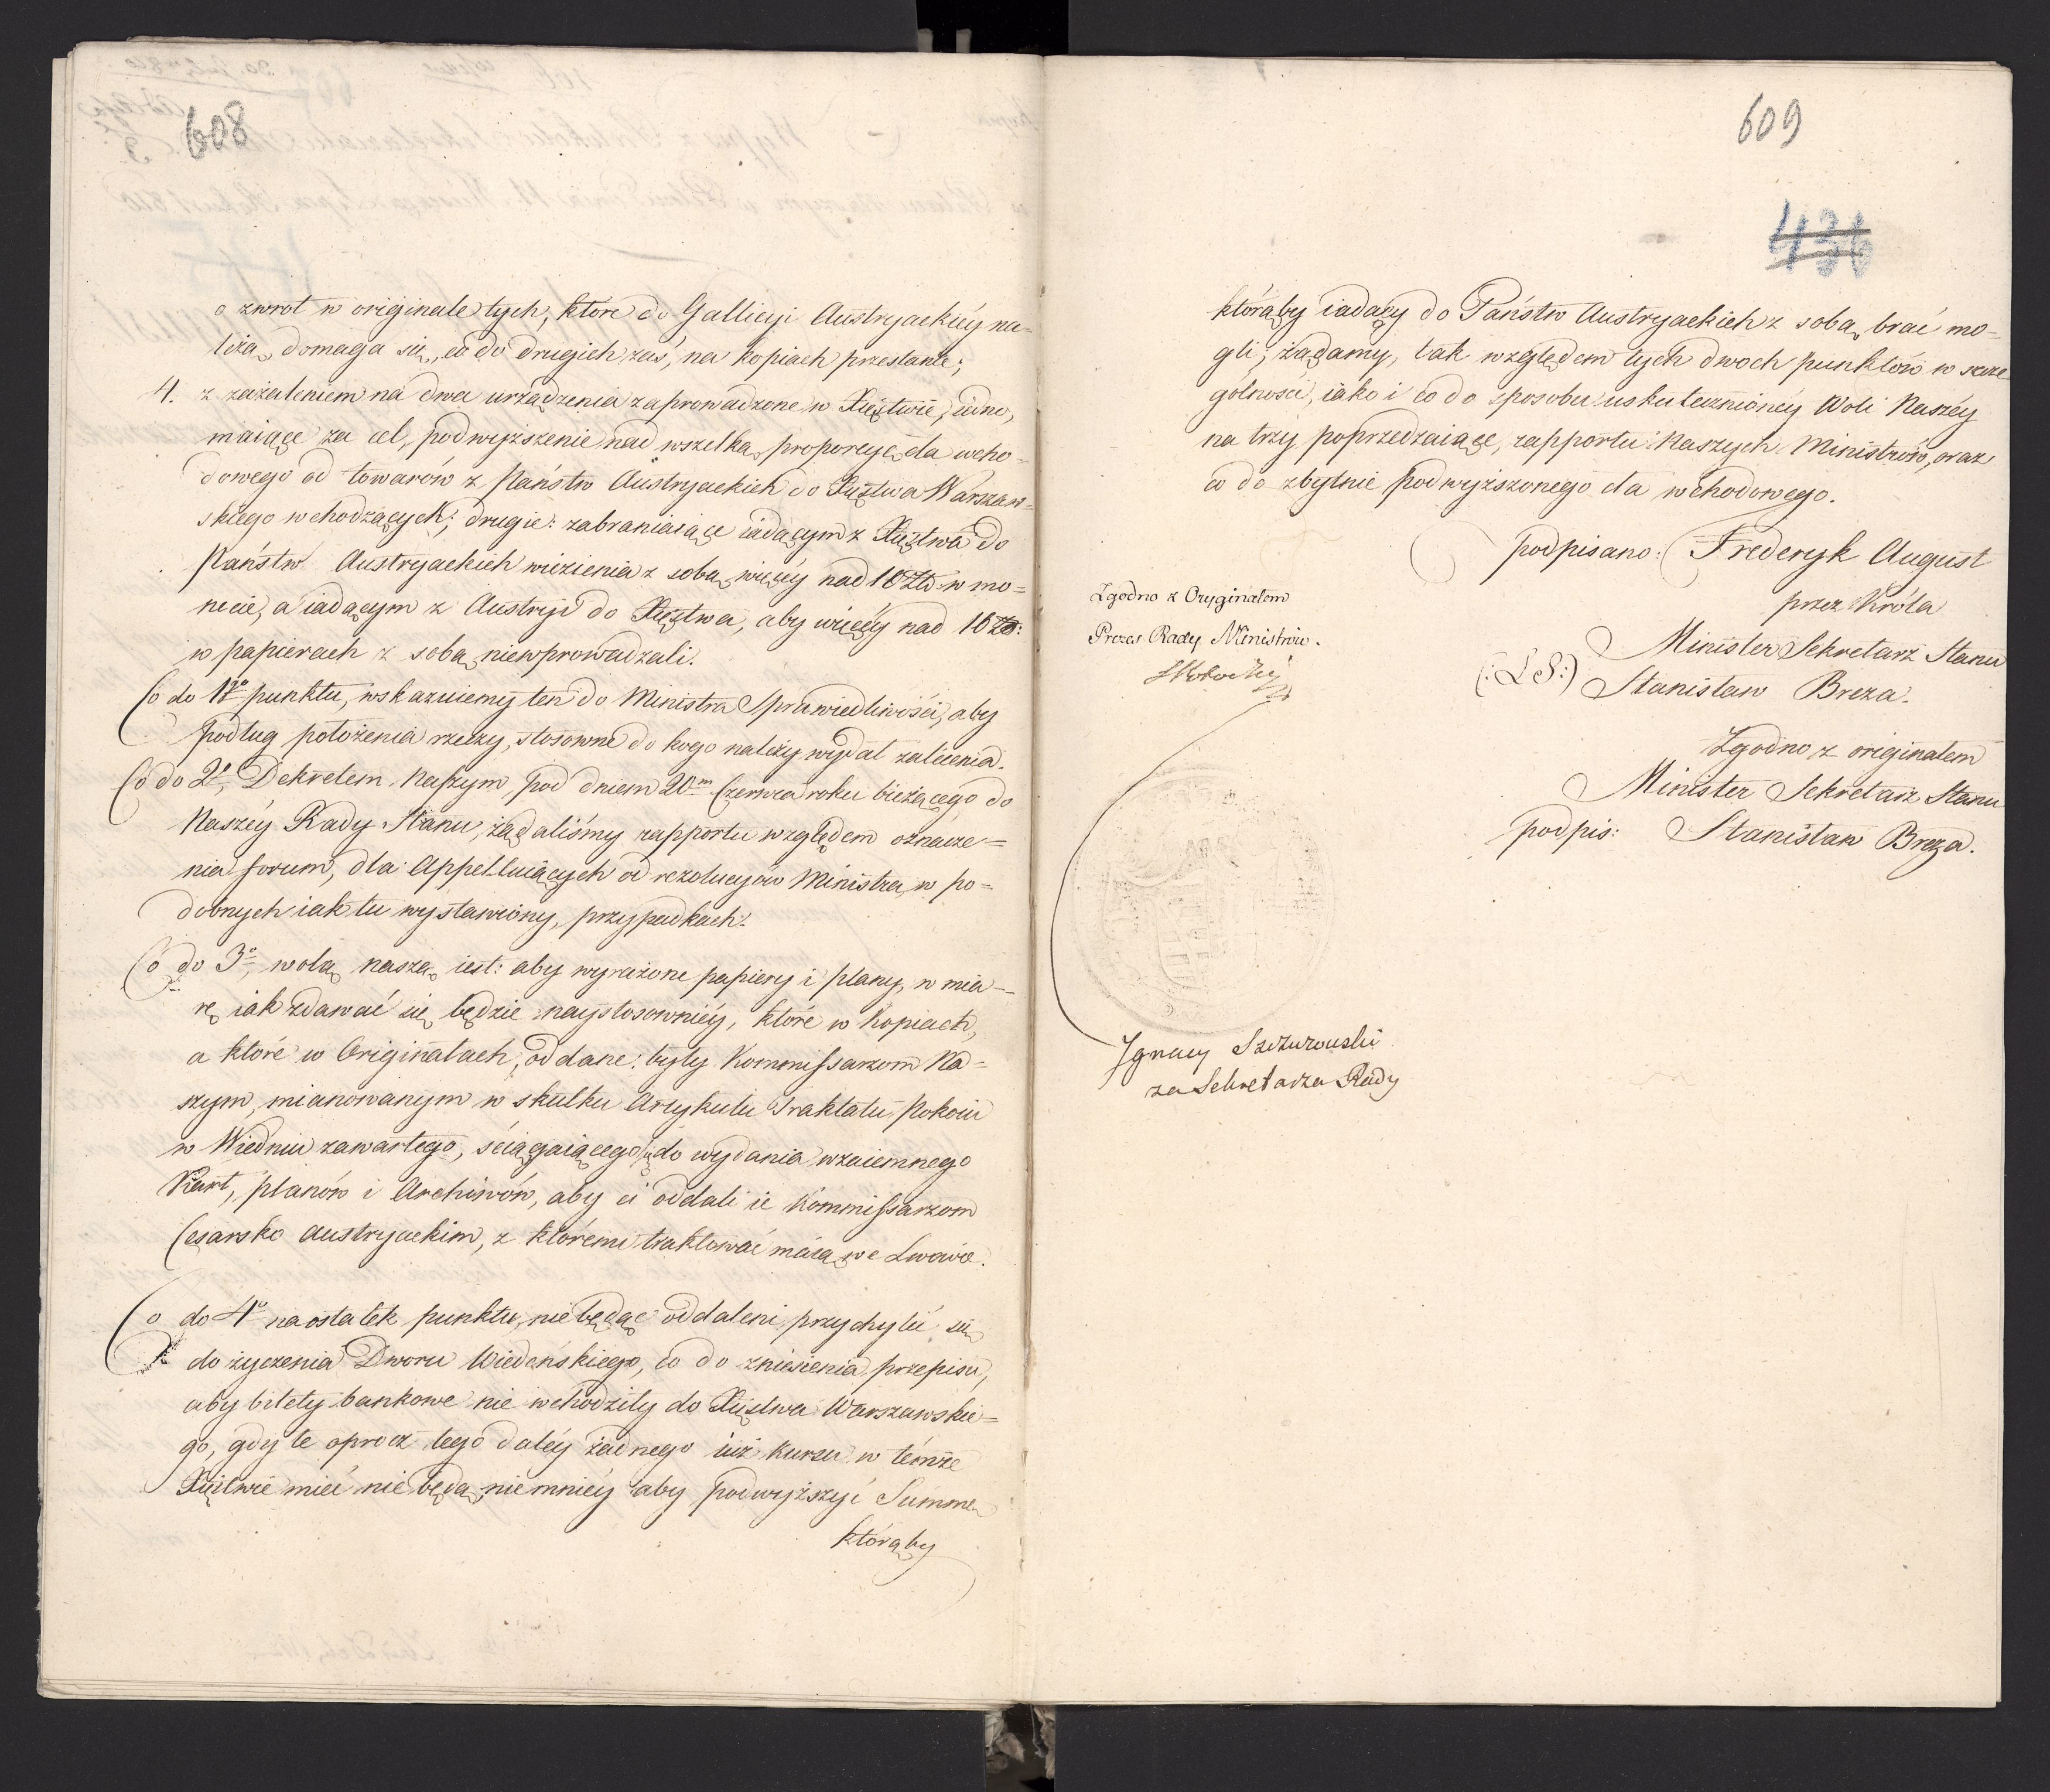 608
o zwrot w originale tych, które do Gallicyi Austryackiéy na=
leżą, domaga się, co do drugich zaś, na kopiach przestaie;
4. z zażaleniem na dwa urządzenia zaprowadzone w Xięztwie, iedno,
maiące za cel, podwyższenie nad wszelką proporcyę cła wcho=
dowego od towarów z Państw Austryackich do Xięztwa Warszaw=
skiego wchodzących; drugie: zabraniaiące iadącym z Xięztwa do
Państw Austryackich wiezienia z sobą więcéy nad 10 Zło w mo=
necie, a iadącym z Austryi do Xięztwa, aby więcéy nad 10 Zło:
w papierach z sobą niewprowadzali.
Co do 1go punktu, wskazuiemy ten do Ministra Sprawiedliwości, aby
podług położenia rzeczy, stosowne do kogo należy wydał zalecenia.
Co do 2o, Dekretem Naszym, pod dniem 20m Czerwca roku bieżącego, do
Naszéy Rady Stanu, żądaliśmy rapportu względem oznacze=
nia forum, dla Appelluiących od rezolucyów Ministra, w po=
dobnych iak tu wystawiony, przypadkach.
Co do 3o, wolą naszą iest: aby wyrażone papiery i plany, w mia=
rę iak zdawać się będzie naystosowniéy, które w Kopiach,
a które w Originałach, oddane były Kommissarzom Na=
szym, mianowanym w skutku Artykułu Traktatu Pokoiu
w Wiedniu zawartego, ściągaiącego się do wydania wzaiemnego
Kart, planów i Archiwów, aby ci oddali ie Kommissarzom
Cesarsko Austryackim, z któremi traktować maią we Lwowie.
Co do 4o naostatek punktu, nie będąc oddaleni przychylić się
do życzenia Dworu Wiedeńskiego, co do zniesienia przepisu,
aby bilety bankowe nie wchodziły do Xięztwa Warszawskie=
go, gdy te oprócz tego daléy żadnego iuż kursu w témże
Xięztwie mieć nie będą, niemniéy aby podwyższyć Summę
którąby
609
436
którąby iadący do Państw Austryackich z sobą brać mo=
gli; żądamy, tak względem tych dwoch punktów w szcze
gólności, iako i co do sposobu uskutecznionéy Woli Naszéy
na trzy poprzedzaiące, rapportu Naszych Ministrów, oraz
co do zbytnie podwyższonego cła wchodowego.
podpisano: Frederyk August
przez Króla
Minister Sekretarz Stanu
(:L S:) Stanisław Breza.
Zgodno z originałem
Minister Sekretarz Stanu
podpis: Stanisław Breza.
Zgodno z Oryginałem
Prezes Rady Ministrów.
Ignacy Szczurowski
za Sekretarza Rady